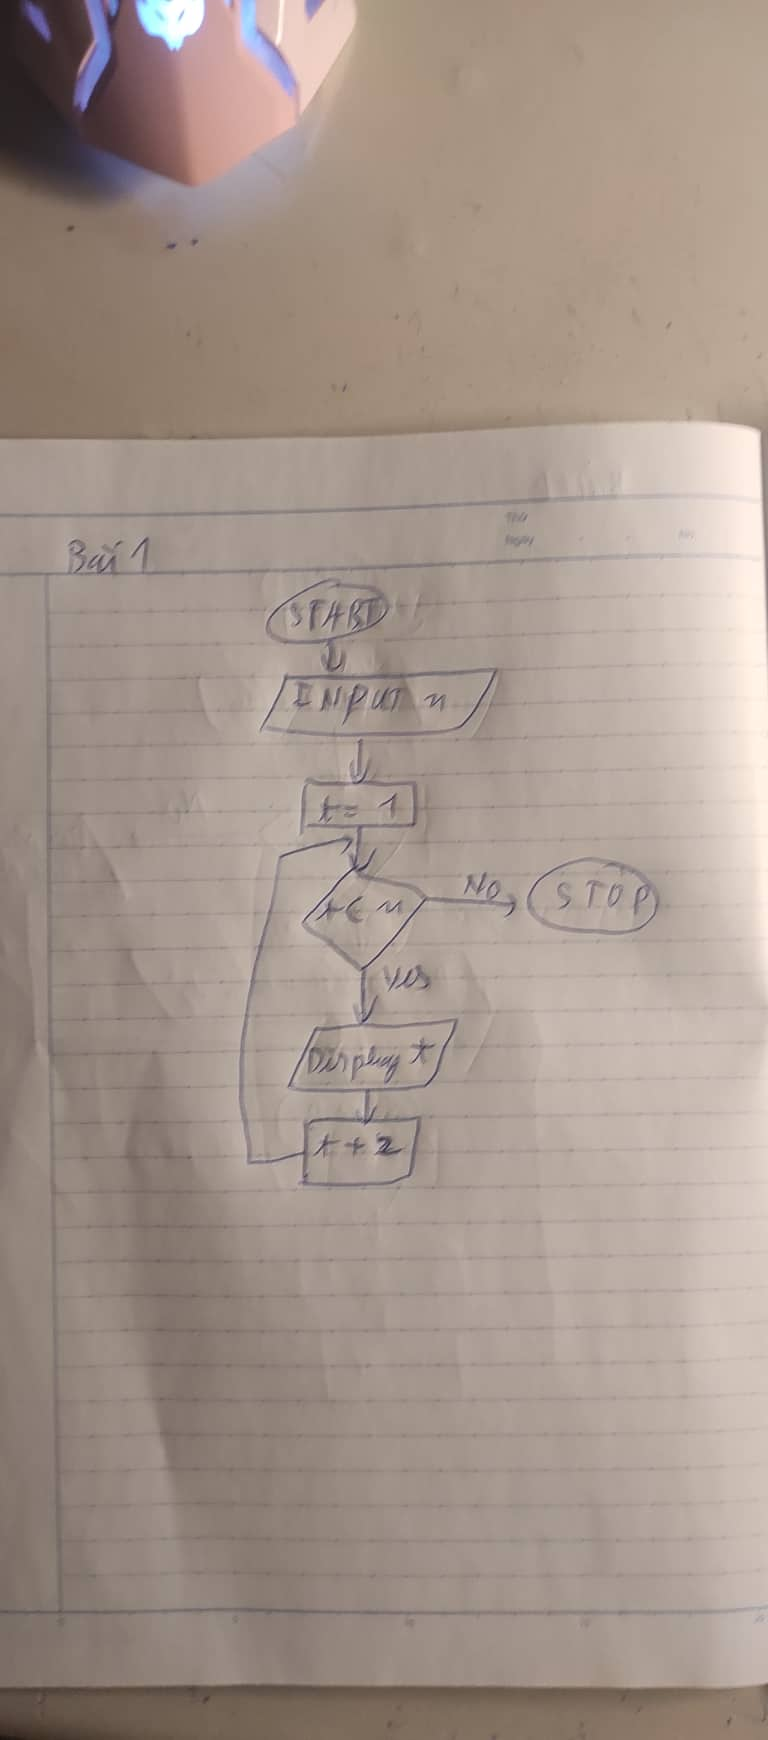 Thứ
Ngày No
Bài 1
START
INPUT n
t = 1
t < n
No
STOP
Yes
Display t
t + 2